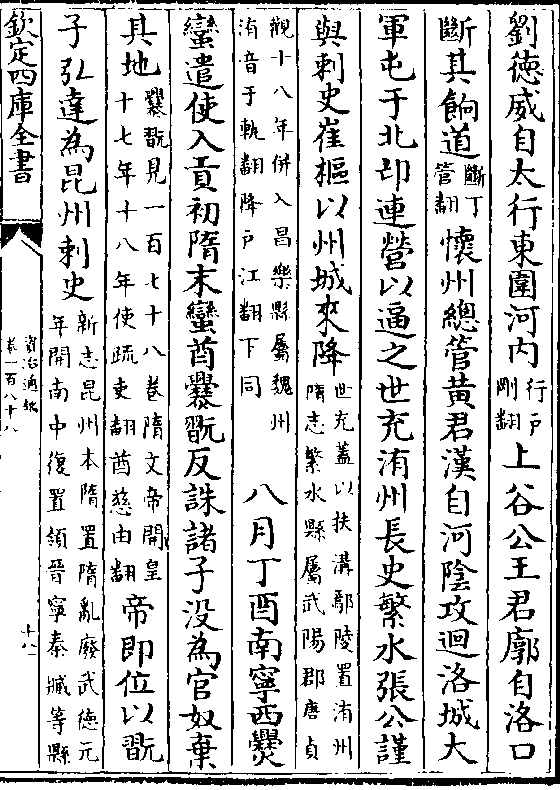 劉徳威自太行東圍河内行户剛翻上谷公王君廓自洛口
斷其餉道斷丁管翻懷州總管黄君漢自河陰攻迴洛城大
軍屯于北邙連營以逼之世充洧州長史繁水張公謹
與刺史崔樞以州城來降世充蓋以扶溝鄢陵置洧州隋志繁水縣屬武陽郡唐貞
觀十八年併入昌樂縣屬魏州洧音于軌翻降户江翻下同八月丁酉南寧西爨
蠻遣使入貢初隋末蠻酋爨翫反誅諸子没為官奴棄
其地爨翫見一百七十八卷隋文帝開皇十七年十八年使疏吏翻酋慈由翻帝即位以翫
子弘達為昆州刺史新志昆州本隋置隋亂廢武德元年開南中復置領晉寧秦臧等縣
欽定四庫全書
資治通鑑
卷一百八十八
十八